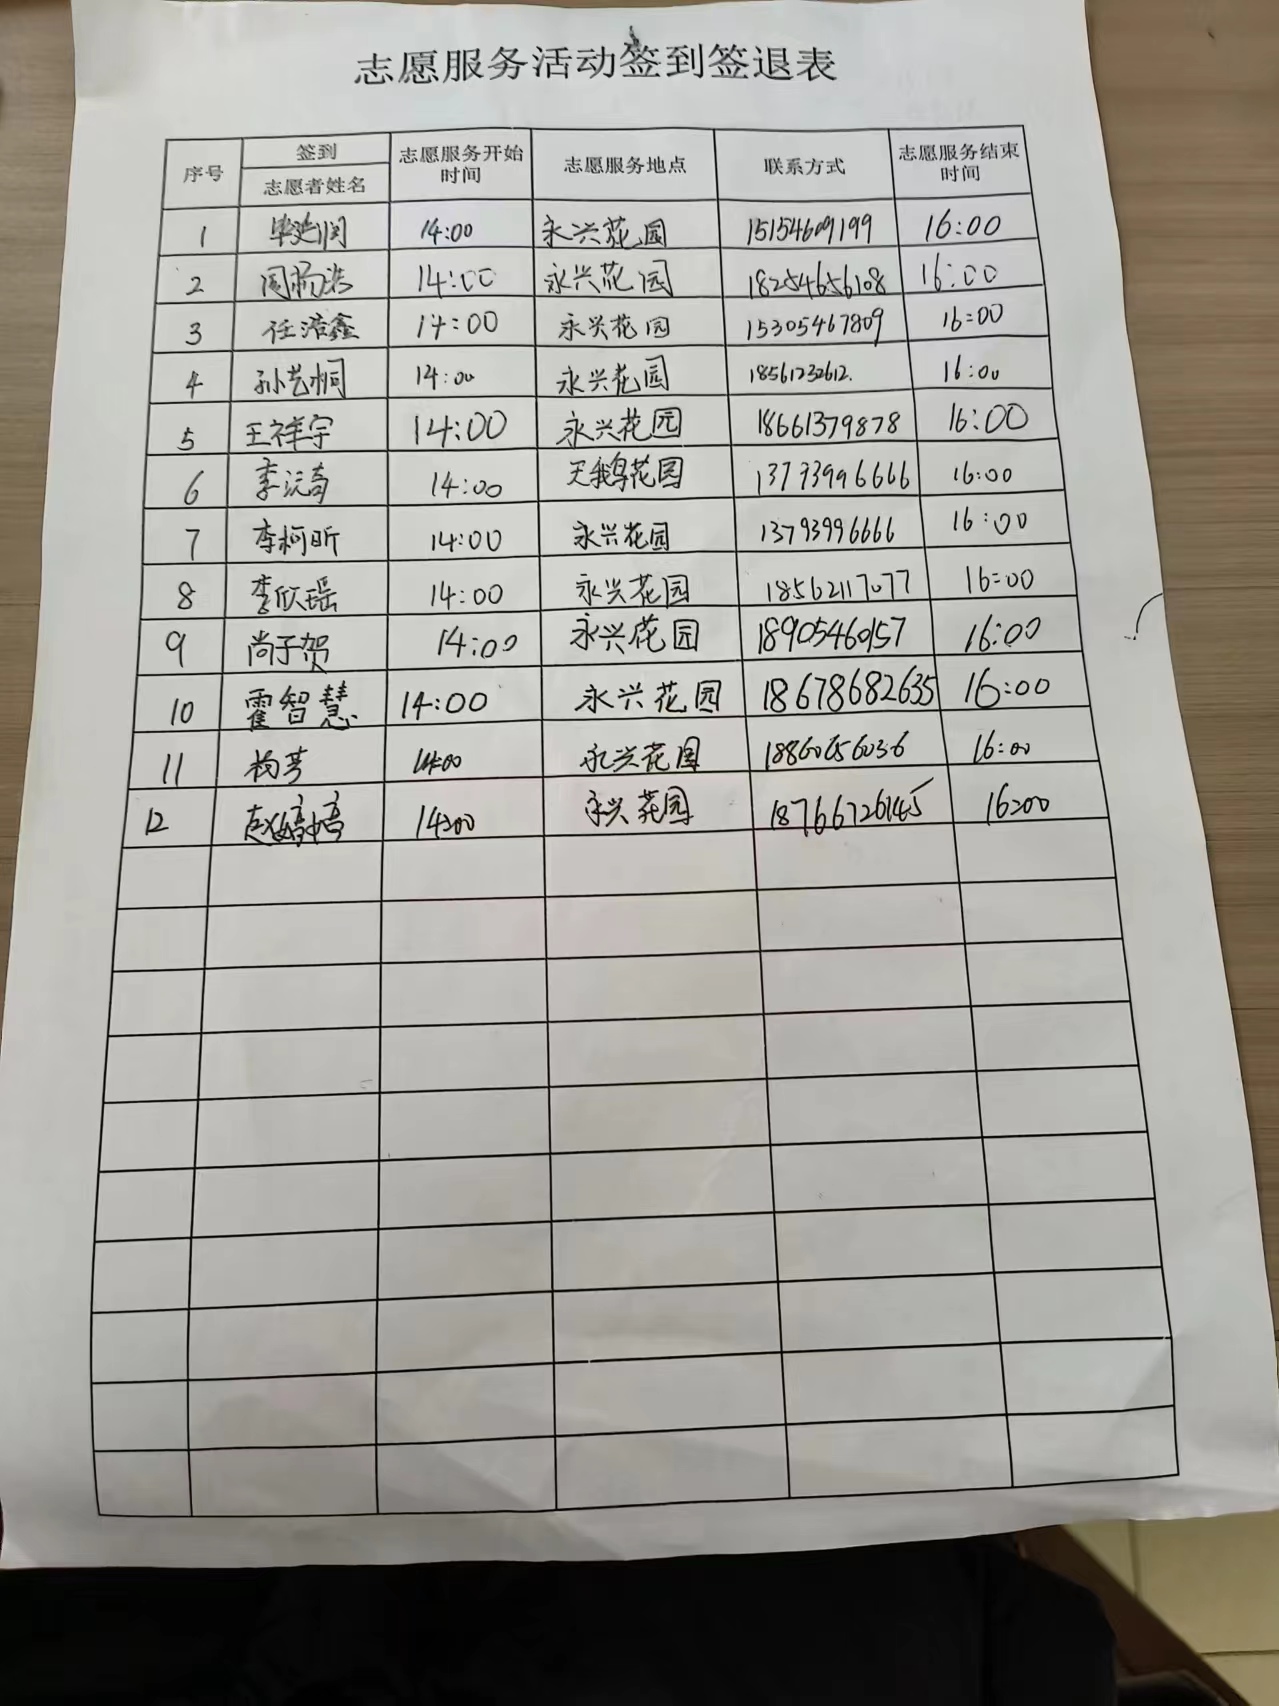 志愿服务活动签到签退表
序号 签到 志愿者姓名 志愿服务开始时间 志愿服务地点 联系方式 志愿服务结束时间
1 毕延润 14:00 永兴花园 15154609199 16:00
2 周杨浩 14:00 永兴花园 18254656108 16:00
3 任浩鑫 14:00 永兴花园 15305467809 16:00
4 孙艺桐 14:00 永兴花园 18561232612. 16:00
5 王祥宇 14:00 永兴花园 18661379878 16:00
6 李沅奇 14:00 天鹅花园 13793996666 16:00
7 李柯昕 14:00 永兴花园 13793996666 16:00
8 李欣瑶 14:00 永兴花园 18562117077 16:00
9 尚子贺 14:00 永兴花园 18905460157 16:00
10 霍智慧 14:00 永兴花园 18678682635 16:00
11 杨芳 14:00 永兴花园 18860656036 16:00
12 赵婷婷 14:00 永兴花园 18766726145 16:00